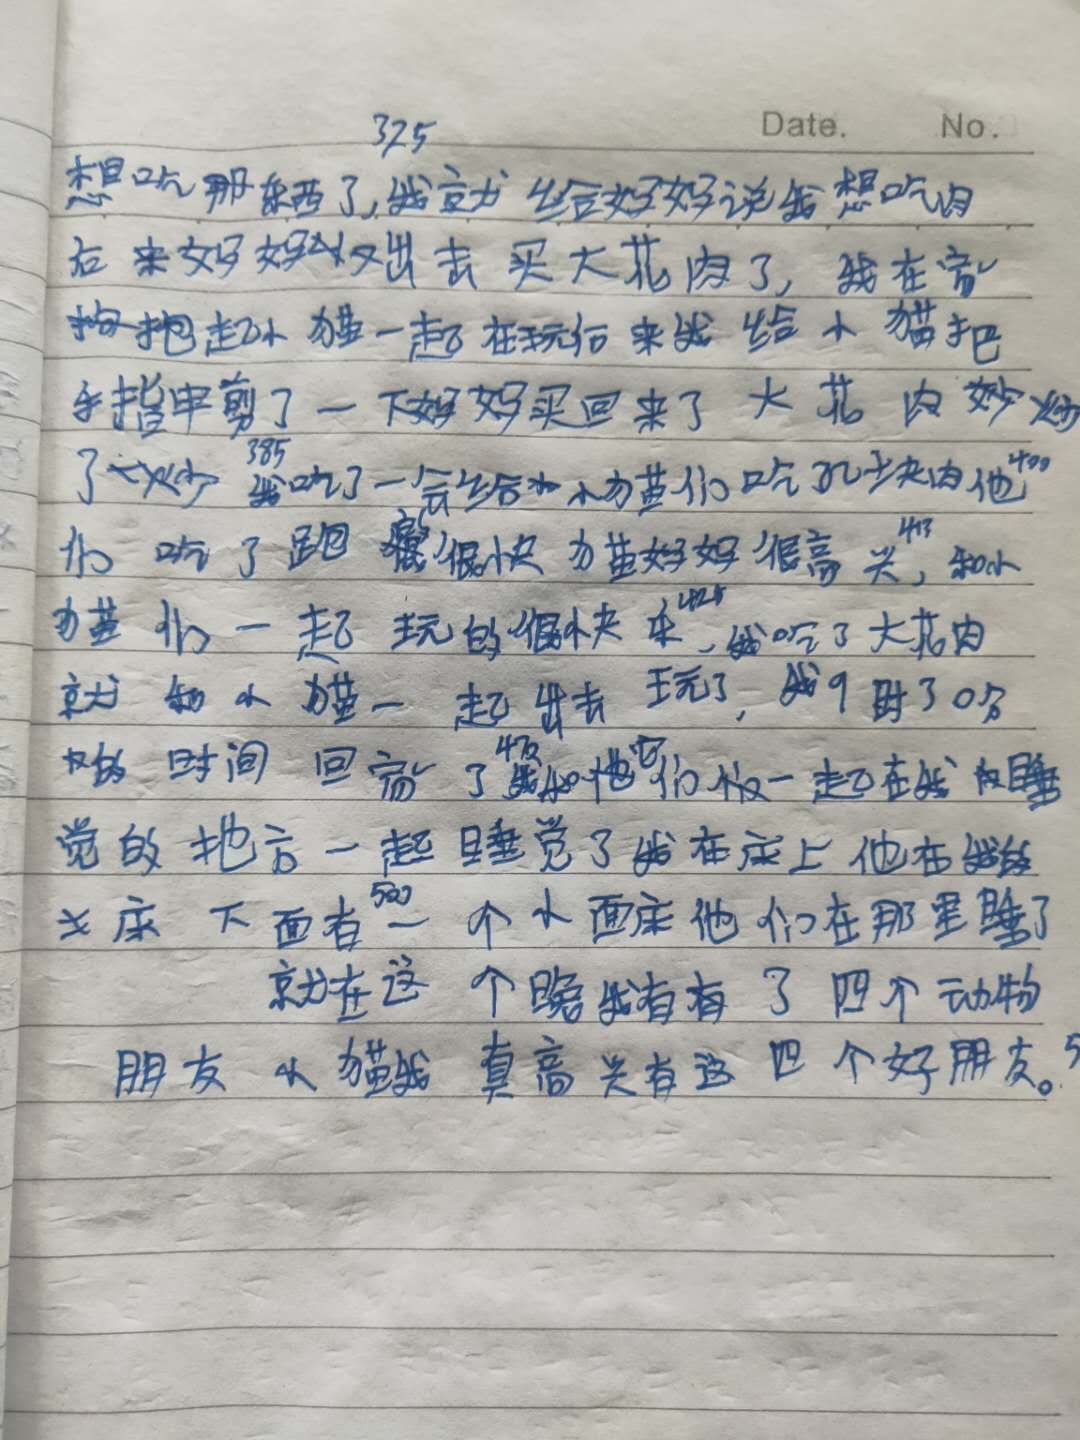 Date. No.
325
想吃那东西了,我就给妈妈说我想吃肉
后来妈妈又出去买大花肉了,我在家
抱起小猫一起在玩后来我给小猫把
手指甲剪了一下妈妈买回来了大花肉炒
了 385 我吃了一会给小猫们吃几块肉他 400
们吃了跑很快猫妈妈很高兴 413 ,和小
猫们一起玩的很快乐 425 ,我吃了大花肉
就和小猫一起出去玩了,我9时30分
的时间回家了我和他们一起在我睡
觉的地方一起睡觉了我在床上他在我的
床下面有 500 一个小面床他们在那里睡了
就在这个晚我有有了四个动物
朋友小猫我真高兴有这四个好朋友。5